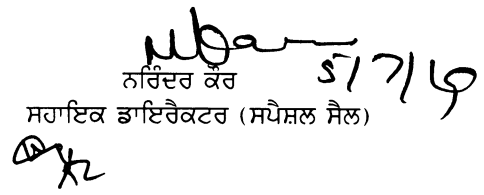 ਨਰਿੰਦਰ ਕੌਰ
ਸਹਾਇਕ ਡਾਇਰੈਕਟਰ (ਸਪੈਸ਼ਲ ਸੈਲ)